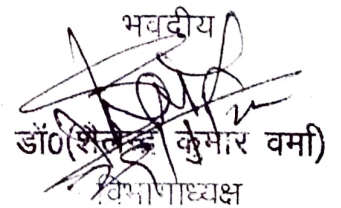 भवदीय
डॉ0(शैलेन्द्र कुमार वर्मा)
विभागाध्यक्ष